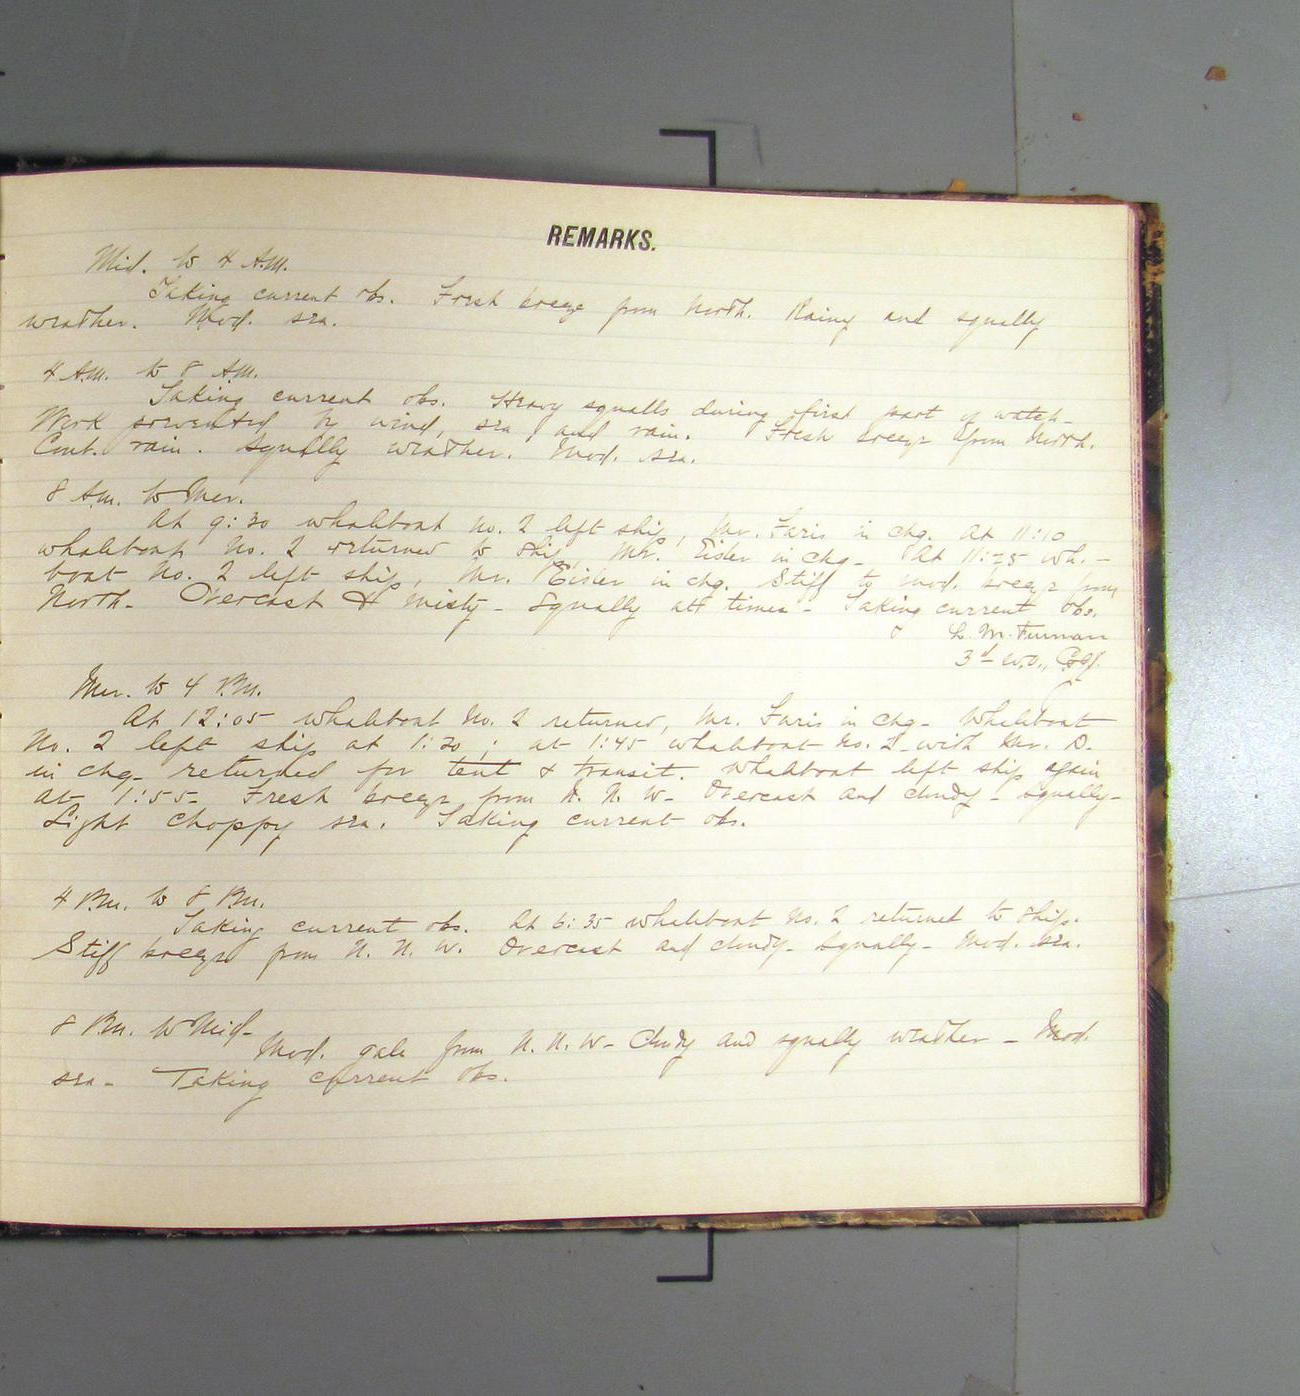 REMARKS.
Mid. to 4 A.M.
Taking current obs. Fresh breeze from North. Rainy and squally
weather. Mod. sea.
4 A.M. to 8 A.M.
Taking current obs. Heavy squalls during first part of watch-
Work prevented by wind, sea and rain. Fresh breeze from North.
Cont. rain. Squally weather. Mod. sea.
8 A.M. to Mer.
At 9:30 whaleboat No. 2 left ship, Mr. Faris in chg. At 11:10
whaleboat No. 2 returned to ship, Mr. Eisler in chg- At 11:25 wh.-
boat No. 2 left ship, Mr. Eisler in chg. Stiff to mod. breeze from
North- Overcast & misty- Squally at times- Taking current obs.
L. M. Furman
3d W.O.,
Mer. to 4 P.M.
At 12:05 whaleboat No. 2 returned, Mr. Faris in chg- Whaleboat
No. 2 left ship at 1:30; at 1:45 whaleboat No. 2 with Mr. D.
in chg- returned for tent & transit. Whaleboat left ship again
at 1:55- Fresh breeze from N. N. W- Overcast and cloudy- squally-
Light choppy sea. Taking current obs.
4 P.M. to 8 P.M.
Taking current obs. At 6:35 whaleboat No. 2 returned to ship.
Stiff breeze from N. N. W. Overcast and cloudy- Squally- Mod. sea.
8 P.M. to Mid-
Mod. gale from N. N. W- Cloudy and squally weather- Mod.
sea- Taking current obs.